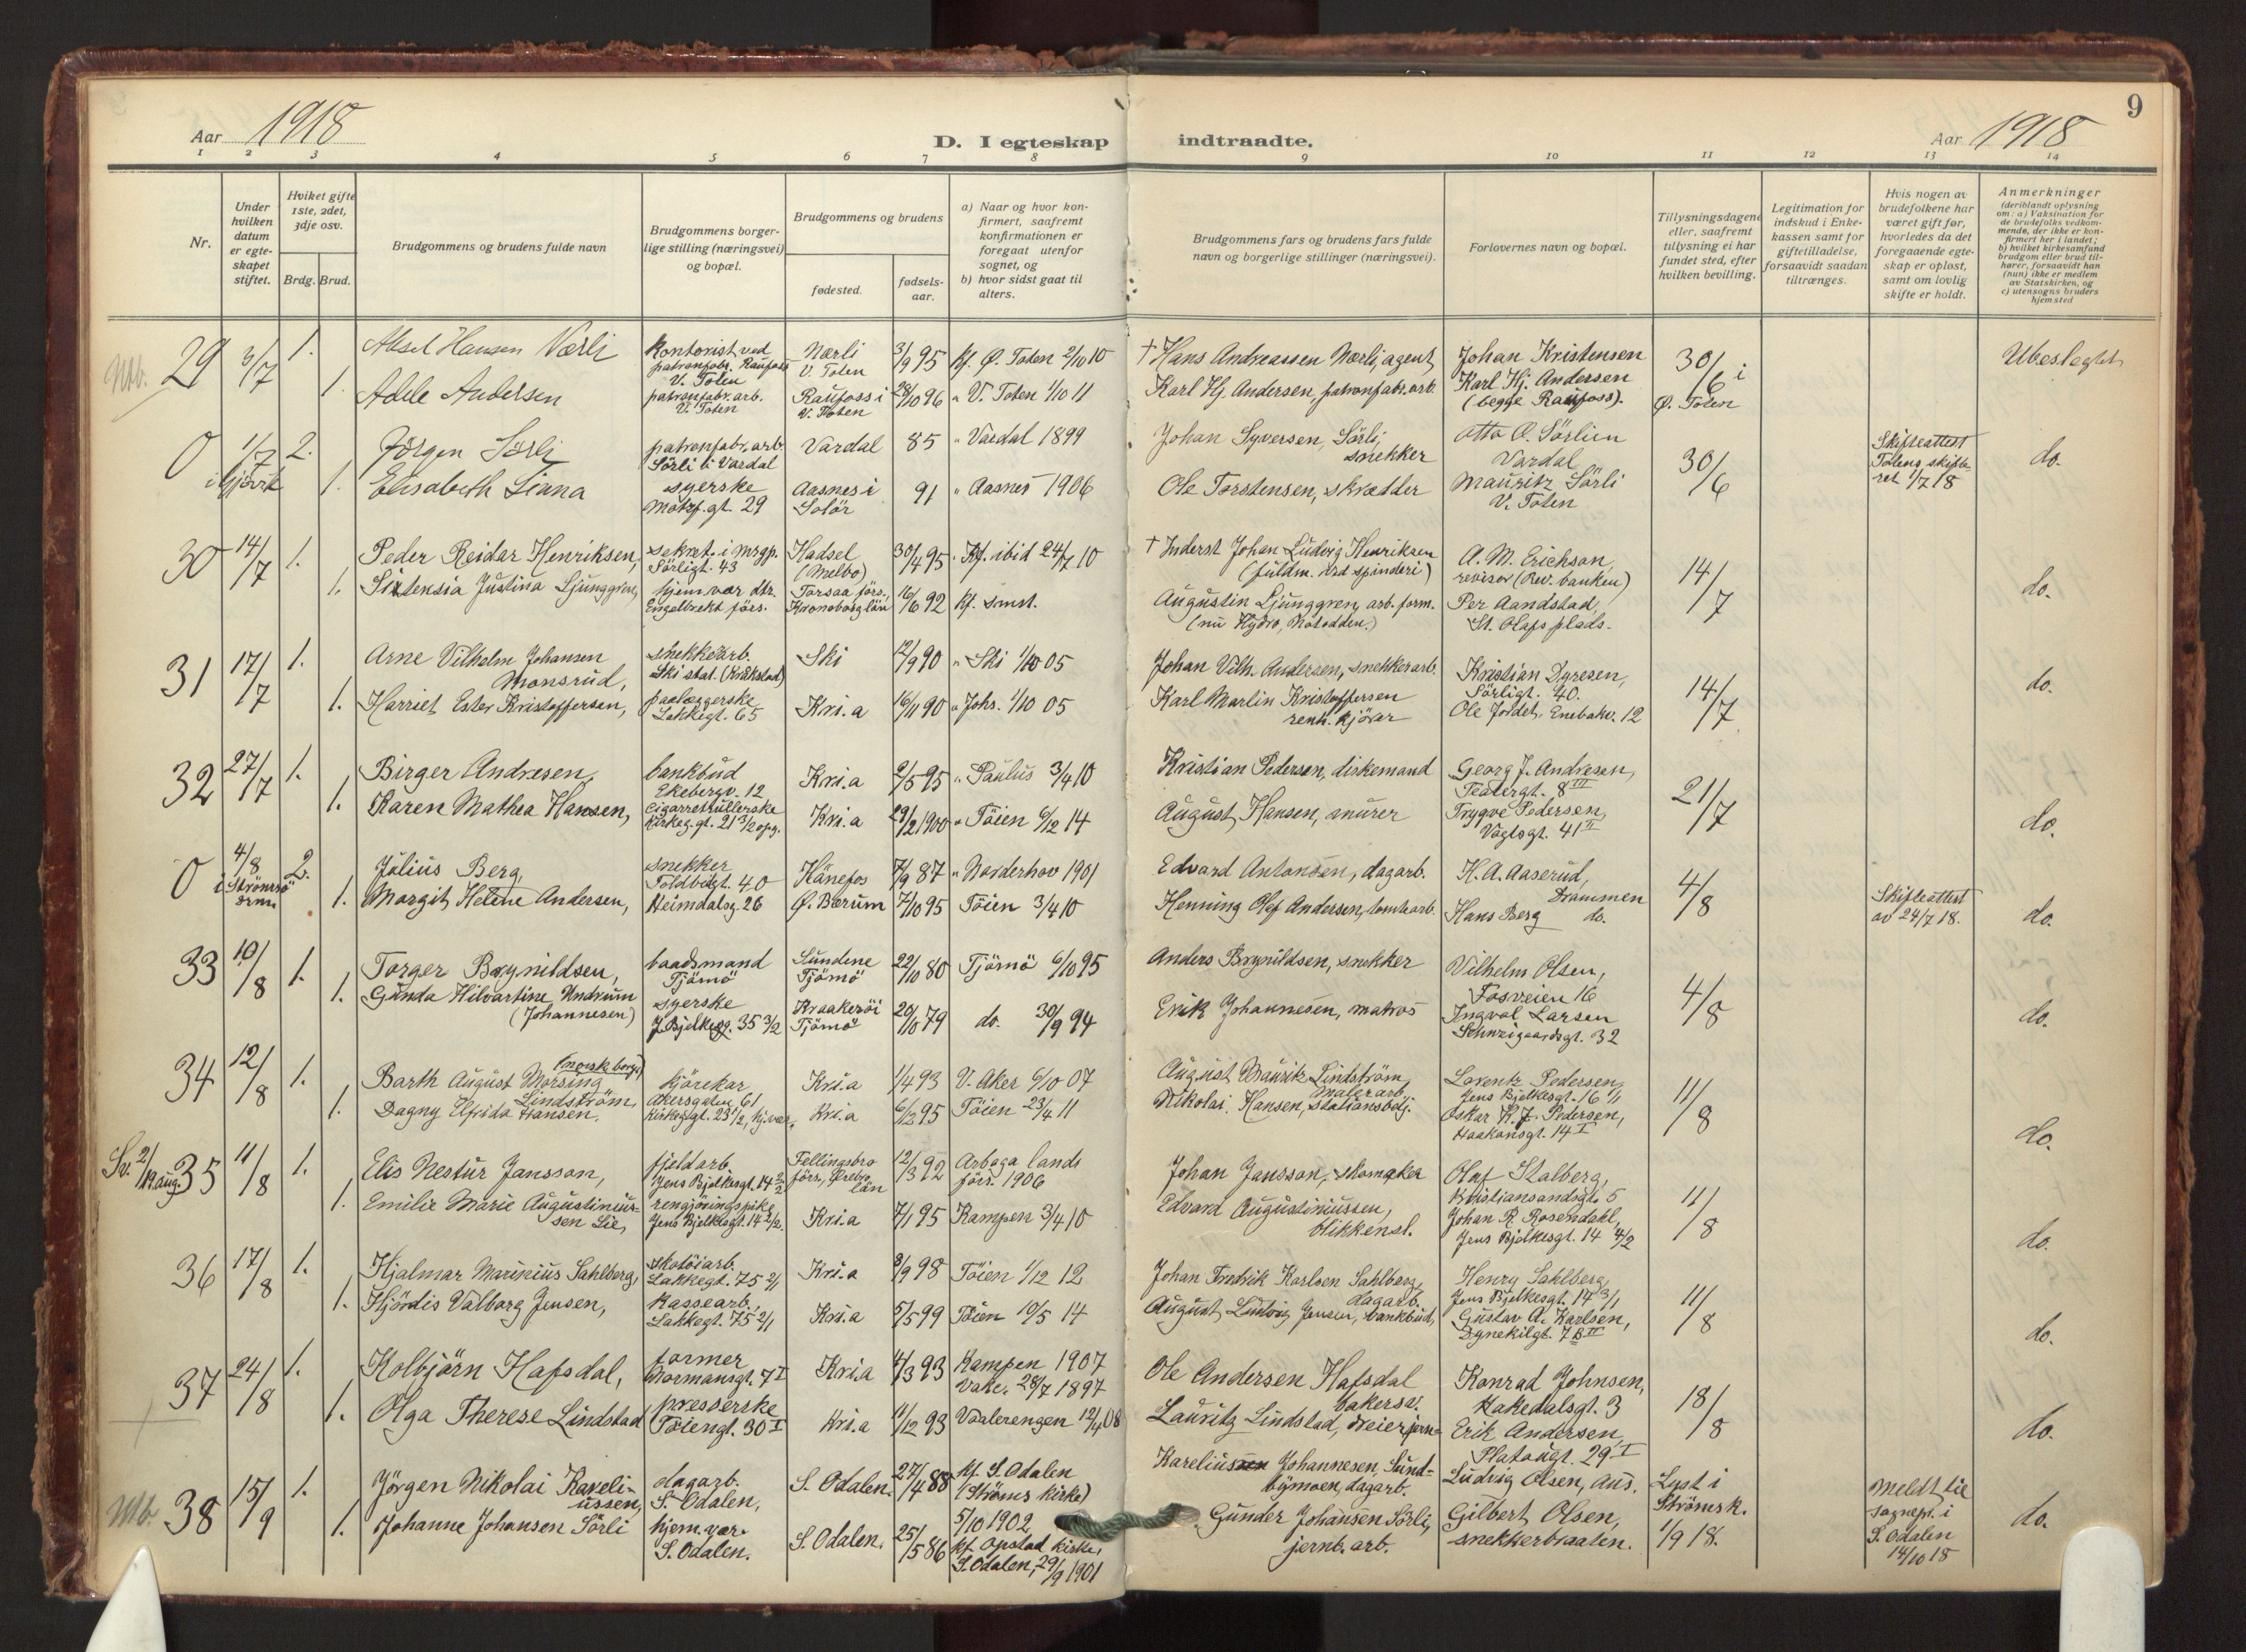 Aar 1918
D. I egteskap indtraadte.
Aar 1918
9
1 2 3 4 5 6 7 8 9 10 11 12 13 14
Nr.
Under hvilken datum er egteskapet stiftet.
Hviket gifte 1ste, 2det, 3dje osv.
Brdg. Brud.
Brudgommens og brudens fulde navn
Brudgommens borgerlige stilling (næringsvei) og bopæl.
Brudgommens og brudens
fødested.
fødselsaar.
a) Naar og hvor konfirmert, saafremt konfirmationen er foregaat utenfor sognet, og
b) hvor sidst gaat til alters.
Brudgommens fars og brudens fars fulde navn og borgerlige stillinger (næringsvei).
Forlovernes navn og bopæl.
Tillysningsdagene eller, saafremt tillysning ei har fundet sted, efter hvilken bevilling.
Legitimation for indskud i Enkekassen samt for giftetilladelse, forsaavidt saadan tiltrænges.
Hvis nogen av brudefolkene har været gift før, hvorledes da det foregaaende egteskap er opløst, samt om lovlig skifte er holdt.
Anmerkninger (deriblandt oplysning om: a) Vaksination for de brudefolks vedkommende, der ikke er konfirmert her i landet; b) hvilket kirkesamfund brudgom eller brud tilhører, forsaavidt han (hun) ikke er medlem av Statskirken, og c) utensogns bruders hjemsted
Ntb. 29 3/7 1. Aksel Hansen Nærli kontorist ved patronfabr. Raufoss V. Toten Nærli V. Toten 3/9 95 kf. Ø. Toten 2/10 10 † Hans Andreassen Nærli, agent Johan Kristensen 30/6 i Ø. Toten Ubeslegtet
1. Adele Andersen patronfabr. arb. V. Toten Raufoss i V. Toten 28/10 96 " V. Toten 1/10 11 Karl Hj. Andersen, patronfabr. arb. Karl Hj. Andersen (begge Raufoss).
0 1/7 i Gjøvik 2. Jørgen Sørli patronfabr. arb. Sörli i Vardal Vardal 85 " Vardal 1899 Johan Syversen, Sörli, snekker Otto O. Sörlien Vardal 30/6 Skifteattest Totens skifteret 1/7 18 do.
1. Elisabeth Liana syerske Motzf. gt. 29 Aasnes i Solör 91 " Aasnes 1906 Ole Torstensen, skrædder Mauritz Sörli V. Toten
30 14/7 1. Peder Reidar Henriksen, sekret. i Sörligt. 43 Hadsel (Melbo) 30/4 95 " Kf. ibid 24/7 10 † Inderst Johan Ludvig Henriksen (fuldm. ved spinderi) A. M. Erichson, revisor (Rev. banken) 14/7 do.
1. Sixtensia Justina Ljunggren, hjem.vær. dtr. Engelbrekt förs. Torsaa förs., Kronoborg län 16/6 92 kf. smst. Augustin Ljunggren, arb. form. (nu Hydro, Notodden.) Per Aandstad, St. Olafs plads.
31 17/7 1. Arne Vilhelm Johansen Monsrud, snekkerarb. Ski stat. (Kråkstad) Ski 12/9 90 " Ski 1/10 05 Johan Vilh. Andersen, snekkerarb. Kristian Dyresen, Sörligt. 40. 14/7 do.
1. Harriet Ester Kristoffersen, paalæggerske Lakkegt. 65 Kri.a 16/11 90 " Johs. 1/10 05 Karl Martin Kristoffersen renh. kjörer Ole Jordet, Enebakv. 12
32 27/7 1. Birger Andresen, bankbud Ekebergv. 12 Kri.a 9/5 95 " Paulus 3/4 10 Kristian Pedersen, diskemand Georg J. Andresen, Teatergt. 8 III 21/7 do.
1. Karen Mathea Hansen, cigaretrullerske Kirkeg. gt. 21 3/2 opg. Kri.a 29/2 1900 " Töien 6/12 14 August Hansen, murer Trygve Pedersen, Vogtsgt. 41 II
0 4/8 i Strömsö 2. Julius Berg, snekker Toldbodgt. 40 Hönefos 7/9 87 " Norderhov 1901 Edvard Antonsen, dagarb. H. A. Aaserud, Drammen 4/8 Skifteattest av 24/7 18. do.
1. Margit Helene Andersen, Heimdalsg. 26 Ø. Bærum 7/10 95 Töien 3/4 10 Henning Olaf Andersen, tomtearb. Hans Berg do.
33 10/8 1. Torger Brynildsen, baadsmand Tjömö Sundene Tjömö 22/10 80 Tjömö 6/10 95 Anders Brynildsen, snekker Vilhelm Olsen, Fosveien 16 4/8 do.
1. Gunda Hilvartine Undrum (Johannesen) syerske J. Bjelkesg. 35 3/2 Kraakeröi Tjömö 20/10 79 do. 30/9 94 Erik Johannesen, matros Ingval Larsen Schweigaardsgt. 32
34 12/8 1. Barth August Morsing Lindström, (norsk borger) kjörekar Akersgaten 61 Kri.a 1/4 93 V. Aker 6/10 07 August Mauritz Lindström, Malerarb. Lorentz Pedersen, Jens Bjelkesgt. 16 11/8 do.
1. Dagny Elfrida Hansen. Kirkeg. gt. 23 1/2, hj.vær., Kri.a 6/12 95 Töien 23/4 11 Nikolai Hansen, stationsbetj. Oskar K. F. Pedersen, Haakonsgt. 14 I
Sv. 2/19 aug. 35 11/8 1. Elis Nestur Jansson, fjeldarb. Jens Bjelkesgt. 14 2/2 Fellingsbro förs., Örebro län 12/3 92 Arboga lands förs. 1906 Johan Jansson, skomaker Olaf Stalberg, Kristiansandsgt. 5 11/8 do.
1. Emilie Marie Augustinussen Lie, rengjöringspike, Jens Bjelkesgt. 14 2/2. Kri.a 7/1 95 Kampen 3/4 10 Edvard Augustiniussen, blikkensl. Johan R. Rosendahl, Jens Bjelkesgt. 14 4/2
36 17/8 1. Hjalmar Marinius Sahlberg, skotöiarb. Lakkegt. 75 2/1 Kri.a 8/9 98 Töien 1/12 12 Johan Fredrik Karlsen Sahlberg, dagarb. Henry Sahlberg, Jens Bjelkesgt. 14 3/1 11/8 do.
1. Hjördis Valborg Jensen, kassearb. Lakkegt. 75 2/1 Kri.a 5/5 99 Töien 10/5 14 August Ludvig Jensen, bankbud, Gustav A. Karlsen, Dynekilgt. 7 B II
37 24/8 1. Kolbjörn Hafsdal, former Normansgt. 7 I Kri.a 4/3 93 Kampen 1907 Vake. 28/7 1897 Ole Andersen Hafsdal bakersv. Konrad Johnsen, Hakedalsgt. 3 18/8 do.
1. Olga Therese Lindstad presserske Töiengt. 30 I Kri.a 11/12 93 Vaalerengen 12/4 08 Lauritz Lindstad, dreier Erik Andersen, Platougt. 29 I
Mb. 38 15/9 1. Jörgen Nikolai Kareliussen, dagarb. S. Odalen, S. Odalen. 27/4 88 kf. S. Odalen (Ströms kirke) 5/10 1902 Karelius Johannesen, Sundbymoen, dagarb. Ludvig Olsen, Aus. Lyst i Ströms k. 1/9 18. Meldt til sognepr. i S. Odalen 14/10 18 do.
1. Johanne Johansen Sörli hjem.vær. S. Odalen. S. Odalen. 25/5 86 kf. Opstad kirke, S. Odalen, 29/9 1901 Gunder Johansen Sörli, jernb. arb. Gilbert Olsen, snekkerbraaten.